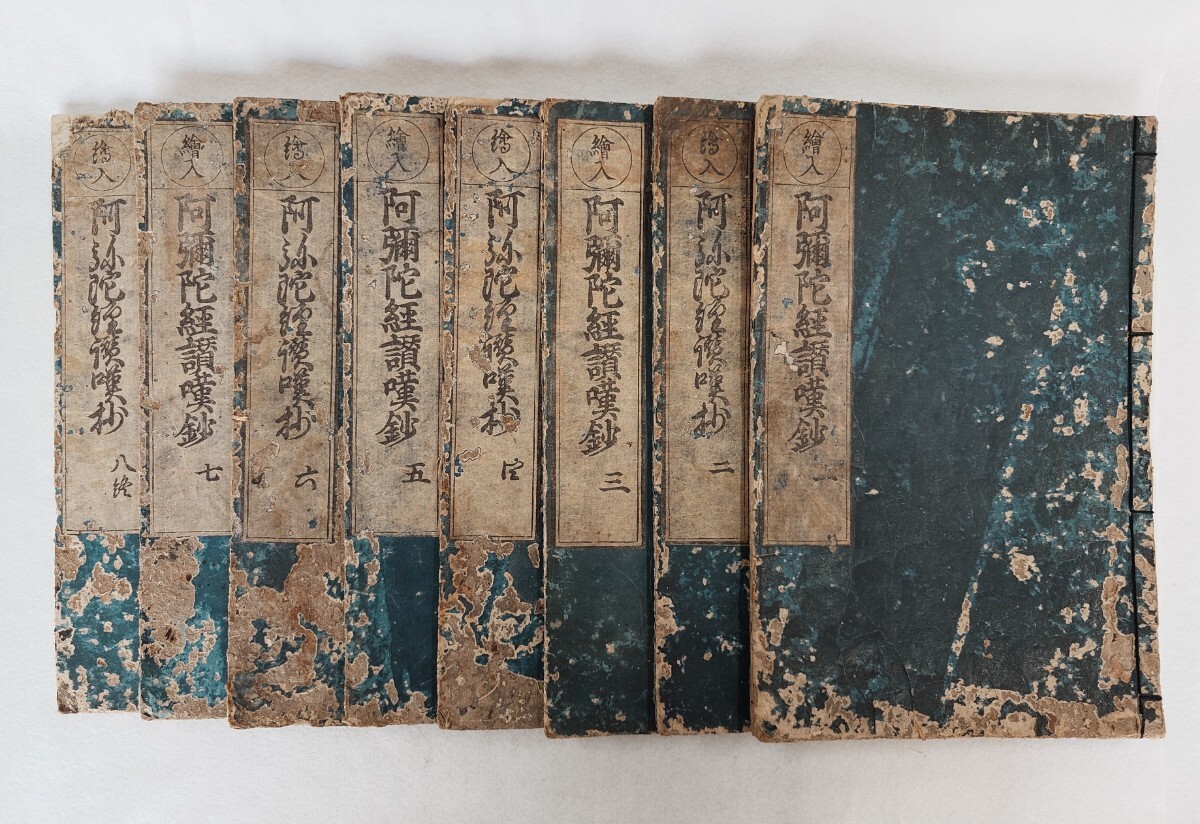 繪入
阿彌陀經讃嘆鈔 一
繪入
阿弥陀經讃嘆抄 二
繪入
阿彌陀經讃嘆鈔 三
繪入
阿弥陀經讃嘆抄 四
繪入
阿彌陀經讃嘆鈔 五
繪入
阿弥陀經讃嘆抄 六
繪入
阿彌陀經讃嘆鈔 七
繪入
阿弥陀經讃嘆抄 八終